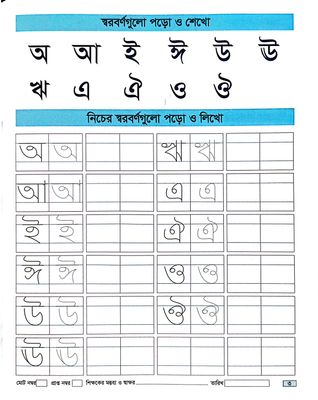 স্বরবর্ণগুলো পড়ো ও শেখো
অ আ ই ঈ উ ঊ
ঋ এ ঐ ও ঔ
নিচের স্বরবর্ণগুলো পড়ো ও লিখো
অ অ ঋ ঋ
আ আ এ এ
ই ই ঐ ঐ
ঈ ঈ ও ও
উ উ ঔ ঔ
ঊ ঊ
মোট নম্বর প্রাপ্ত নম্বর শিক্ষকের মন্তব্য ও স্বাক্ষর তারিখ ৩